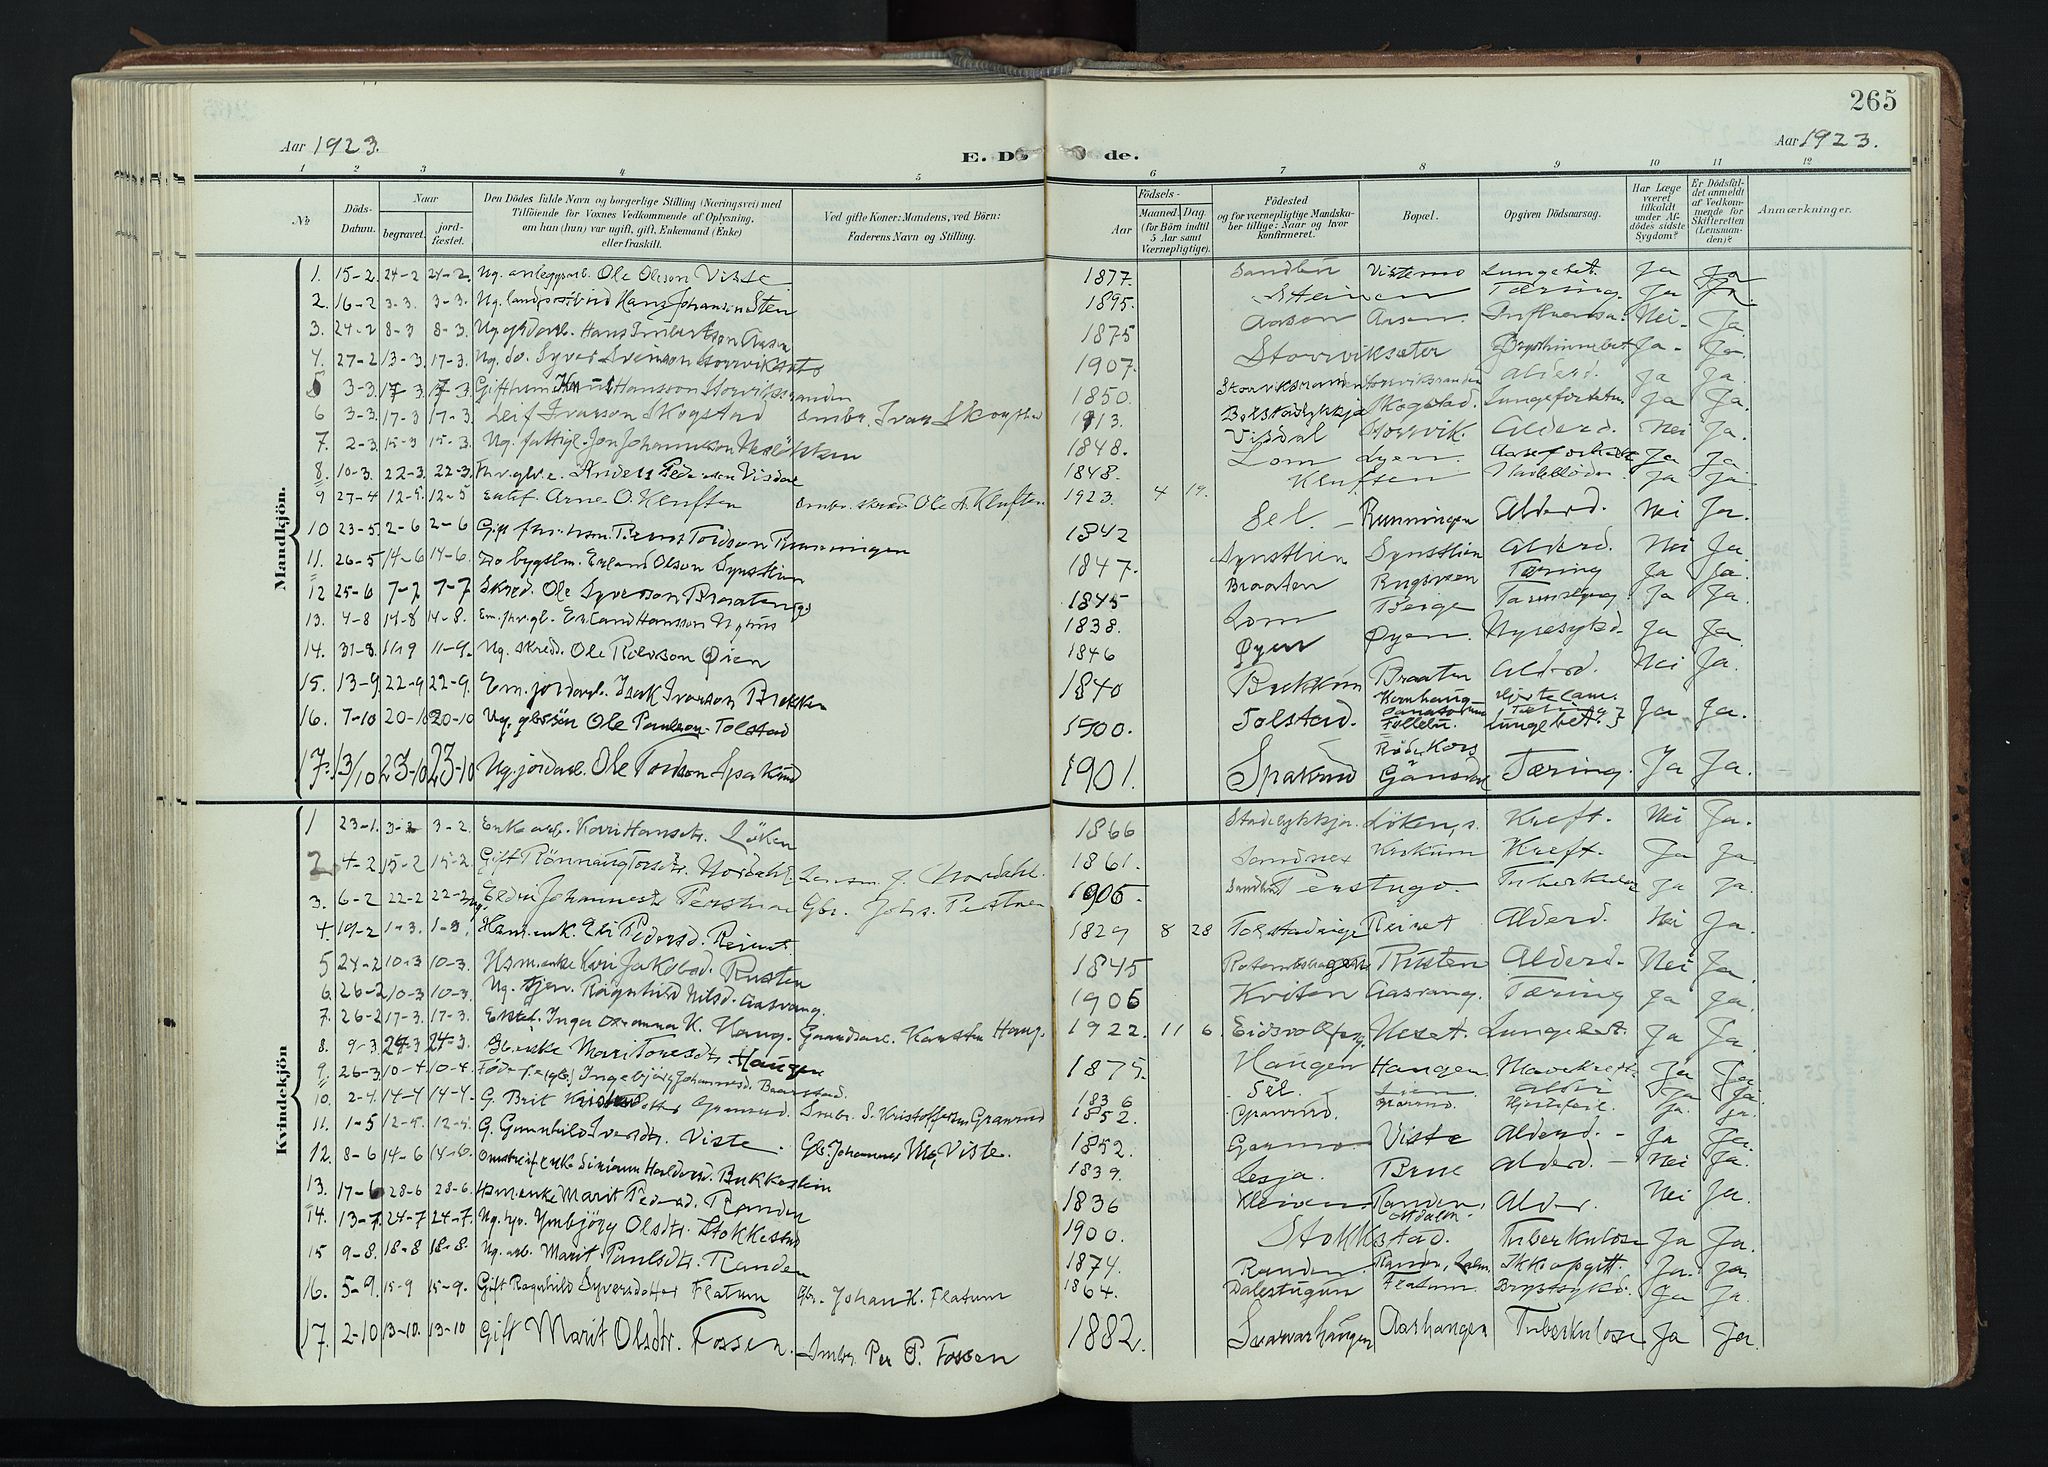 265
Aar 1923.
E. Dö de.
Aar 1923.
1 2 3 4 5 6 7 8 9 10 11 12
No
Döds-Datum.
Naar
begravet.
jord-fæstet.
Den Dödes fulde Navn og borgerlige Stilling (Næringsvei) med
Tilföiende for Voxnes Vedkommende af Oplysning,
om han (hun) var ugift, gift, Enkemand (Enke)
eller fraskilt.
Ved gifte Koner: Mandens, ved Börn:
Faderens Navn og Stilling.
Födsels-
Aar
Maaned. Dag.
(for Börn indtil
5 Aar samt
Værnepligtige).
Födested
og for værnepligtige Mandska-
ber tillige: Naar og hvor
Konfirmeret.
Bopæl.
Opgiven Dödsaarsag.
Har Læge
været
tilkaldt
under Af-
dödes sidste
Sygdom?
Er Dödsfal-
det anmeldt
af Vedkom-
mende for
Skifteretten
(Lensman-
den)?
Anmærkninger.
Mandkjön.
1. 15-2. 24-2 24-2. Ug. anleggsarb. Ole Olsson Viste 1877. Sandbu Vistemo Lungebet. Ja Ja
2. 16-2 3-3. 3-3. Ug. Hans Johansen Sten 1895. Steinen Tæring. Ja Ja.
3. 24-2 8-3 8-3. Hans Aasen 1875 Aasen Aasen. Influensa. Nei- Ja.
4. 27-2 13-3. 17-3. Ug. do. Syver Svenson Storvikseter 1907. Storvikseter Ja- Ja.
5 3-3. 17-3. 17-3. Hansson Storviksranden 1850. Storviksranden Storviksranden Alderd. Ja Ja.
6 3-3. 17-3 17-3. Leif Ivarson Skogstad Smbr. Ivar Skogstad 1913. Skogstad. Ja Ja.
7. 2-3. 15-3 15-3. Ug. fattigl. Jon Johannesson 1848. Visdal Storvik. Alderd. Nei Ja.
8. 10-3. 22-3. 22-3. Anders Pedersen Visdal 1848. Lom Ja Ja
9 27-4 12-5. 12-5 Arne O. Kluften Smbr. skred Ole A. Kluften 1923. 4 19. Kluften Ja Ja
10 23-5. 2-6 2-6 Gift Tordson Runningen 1842 Sel. - Runningen Alderd. Nei Ja.
11. 26-5 14-6 14-6. Do bygslm. Erland Olson Synstlien 1847. Synstlien Synstlien Alderd. Nei Ja
12 25-6 7-7 7-7 Skred. Ole Syverson Braaten 1845 Braaten Rugsveen Tæring Ja Ja.
13. 4-8 18-8 14-8. Erland Hansson Nyhus 1838. Lom Berge Ja Ja.
14. 31-8. 11-9 11-9. Ug. skredd. Ole Rolvson Øien 1846 Øyen Øyen. Nyresykd. Ja Ja.
15. 13-9. 22-9 22-9. Em. jordarb. Isak Ivarson Bekken 1840 Braaten Alderd. Nei Ja.
16. 7-10 20-10 20-10 Ug. gbrsön Ole Paulson Tolstad 1900. Tolstad. Kornhaug- sanatorium Follebu. Lungebet. Ja Ja.
17. 13/10 23-10 23-10 Ug. jordarb. Ole Tordson Spakrud 1901. Spakrud Röde Kors Gausdal Tæring. Ja Ja.
Kvindekjön
1 23-1. 3-2 3-2. Enke arb. Kari Hansdtr. Löken 1866 Stadelykkja. Löken, s. Kreft. Nei Ja.
2 4-2 15-2 15-2. Gift Rönnaug Torsdtr. Nordahl Lensm. J. Nordahl. 1861. Sandnes Kirkum Kreft. Ja Ja.
3. 6-2 22-2 22-2 Eldri Johannesdtr. Perstuen Gbr. Johs. Perstuen 1905. Sandbu Perstugo. Tuberkulose Ja Ja.
4. 19-2 1-3. 1-3. Hsm. enk. Eli Pedersd. Reiret 1829 8 28 Tolstadeige Reiret Alderd. Nei Ja.
5 24-2 10-3 10-3. Hsm. enke Kari Jakobsd. Rusten 1845 Rusten Alderd. Nei Ja
6. 26-2 10-3 10-3. Ug. tjen. Ragnhild Nilsd. Aasvang. 1906 Kviten Aasvang. Tæring Ja Ja
7. 26-2 17-3. 17-3. Inger Johanna K. Haug. Gaardarb. Karsten Haug. 1922. 11 6. Lungebet. Ja Ja.
8. 9-3 24-3 24-3. Gbr. enke Mari Toresdtr. Haugen 1875. Haugen Haugen Mavekreft. Ja Ja
9 26-3 10-4 10-4. Ingebjörg Johannesd. Baarstad. 1836 Sel. Ja Ja.
10. 2-4 14-4 14-4. G. Brit Gransrud Smbr. S. Kristoffersen Gransrud 1852. Gransrud. Gransrud. Hjertefeil. Ja. Ja.
11. 1-5 12-5. 12-5. G. Gunnhild Iversdtr. Viste. Gbr. Johannes Viste. 1852. Garmo Viste Alderd. - Ja Ja.
12. 8-6 14-6 14-6. enk. Haldorsd. Bukkeslien 1839. Lesja. Brue Alderd. - Nei Ja.
13. 17-6 28-6 28-6. Hsm. enke Marit Pedersd. Randen 1836 Kleiven Randen, Alder. Nei Ja.
14. 13-7. 24-7 24-7. Ug. Ymbjörg Olsdtr. Stokkestad 1900. Stokkstad. Tuberkulose Ja Ja.
15 9-8. 18-8 18-8. Ug. arb. Marit Paulsdtr. Randen 1874. Randen Randen, Ikke opgitt. Ja. Ja.
16. 5-9. 15-9 15-9. Gift Ragnhild Syversdotter Flatum Gbr. Johan K. Flatum 1864. Dalestugun Flatum. Brystsykd. Ja Ja.
17. 2-10 13-10. 13-10 Gift Marit Olsdtr. Fossen. Smbr. Per P. Fossen 1882. Svarvarhaugen Aarhaugen Tuberkulose Ja Ja.